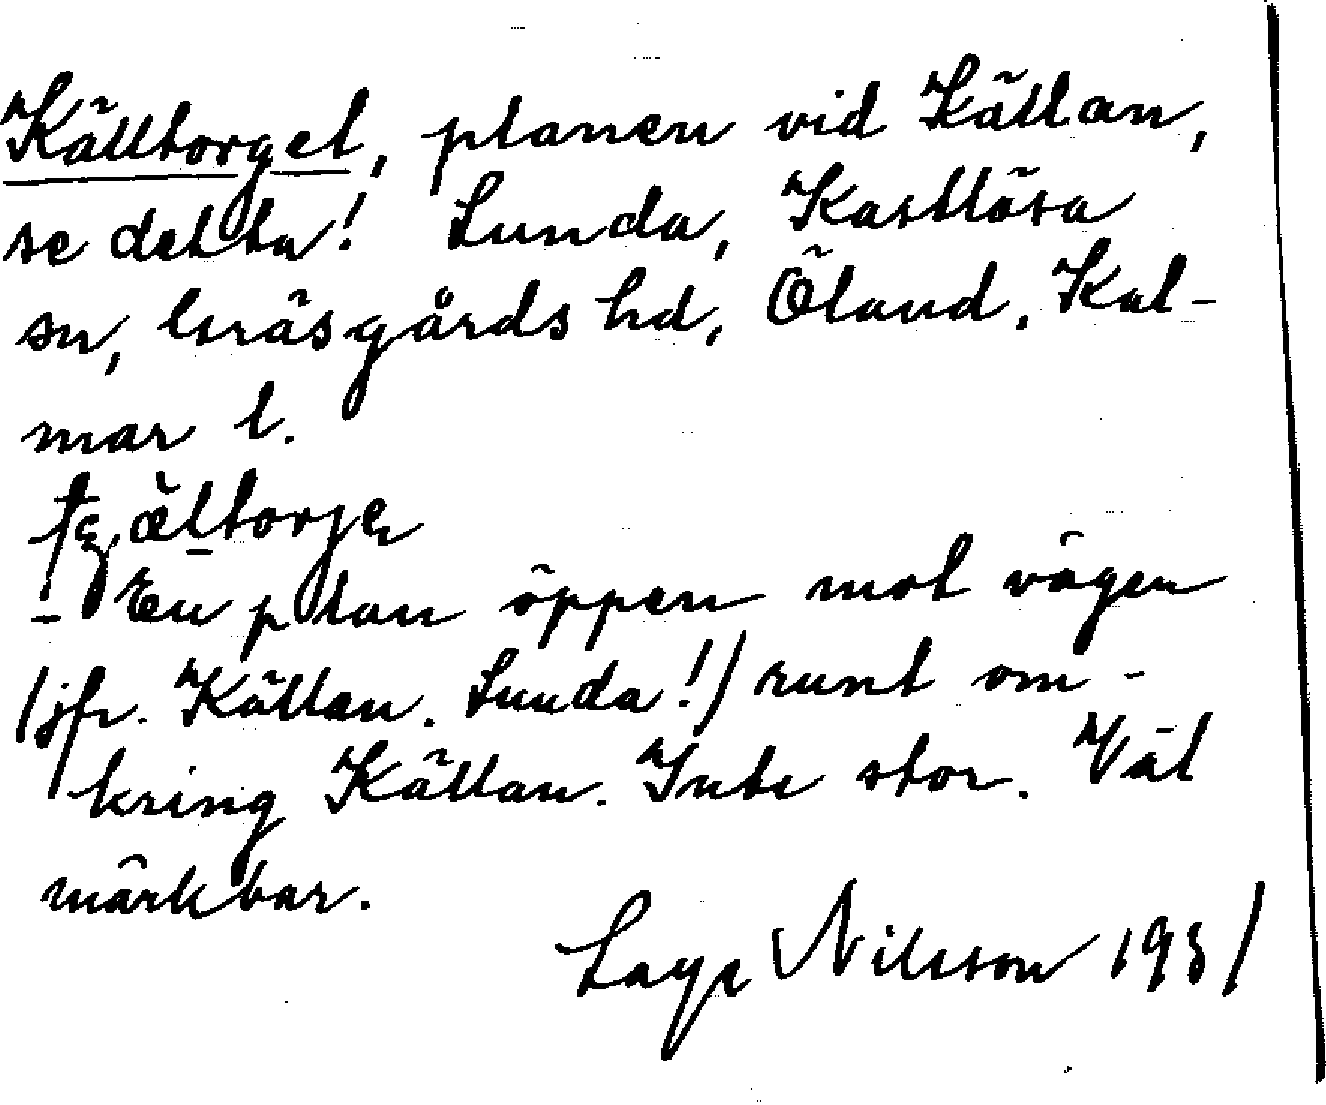 Källtorget, planen vid Källan,
se detta! Lunda, Kastlösa
sn, Gräsgårds hd, Öland, Kal-
mar l.
En plan öppen mot vägen
(jfr. Källan. Lunda!) runt om-
kring Källan. Inte stor. Väl
märkbar.
Lage Nilsson 1931